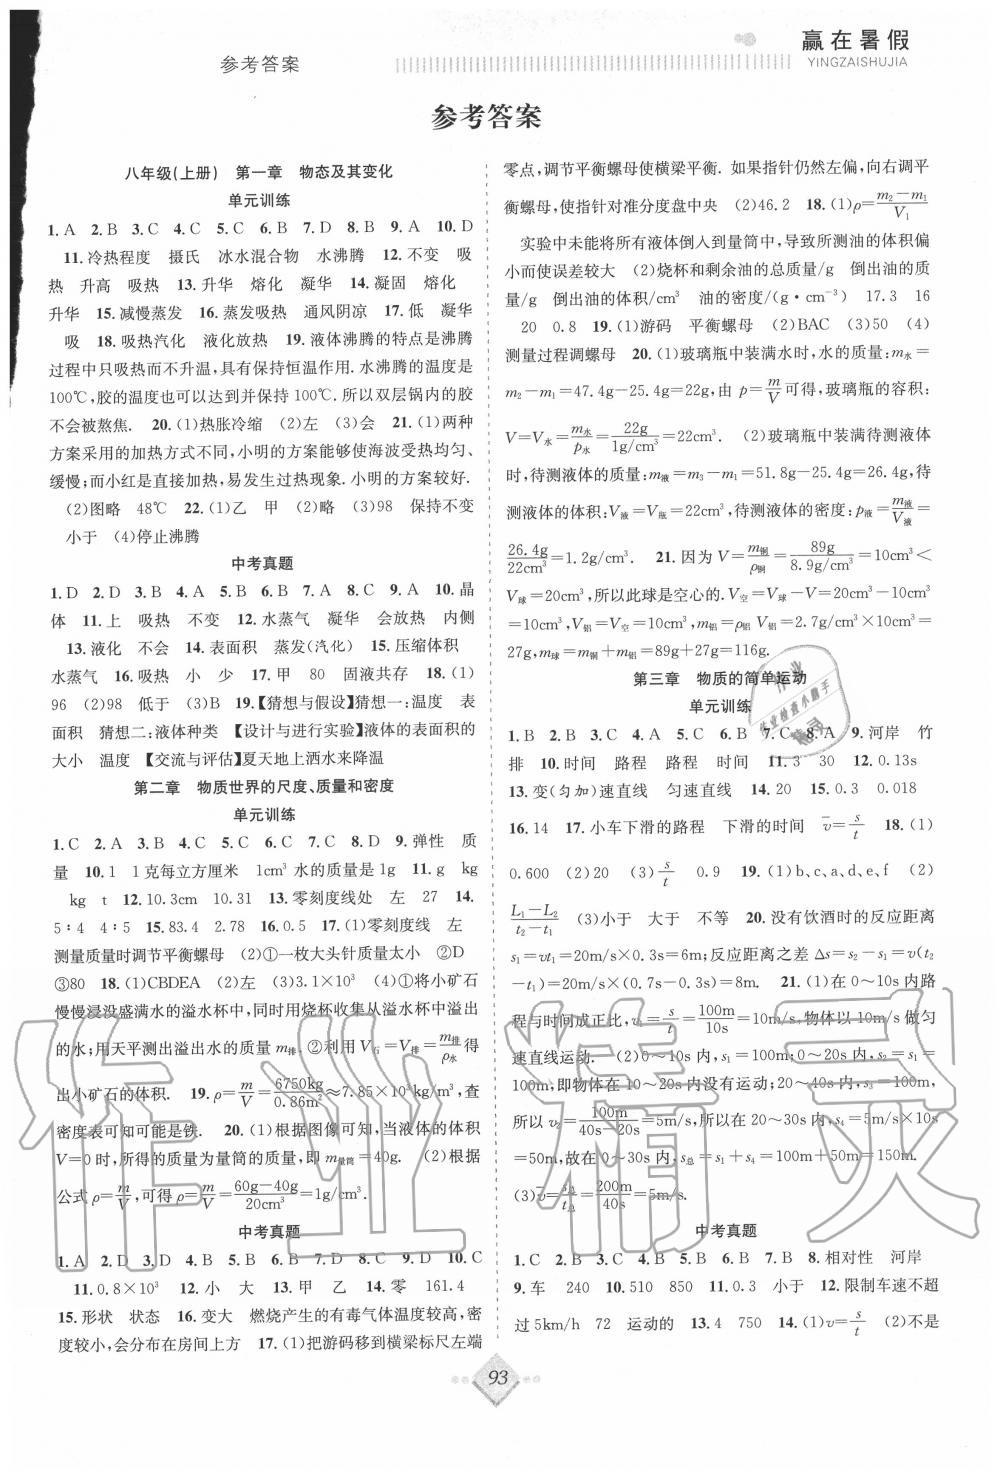 参考答案
赢在暑假
YINGZAISHUJIA
参考答案
八年级(上册) 第一章 物态及其变化
单元训练
1.A 2.B 3.C 4.C 5.C 6.B 7.D 8.B 9.A 10.D
11.冷热程度 摄氏 冰水混合物 水沸腾 12.不变 吸
热 升高 吸热 13.升华 熔化 凝华 14.凝固 熔化
升华 15.减慢蒸发 16.蒸发吸热 通风阴凉 17.低 凝华
吸 18.吸热汽化 液化放热 19.液体沸腾的特点是沸腾
过程中只吸热而不升温,具有保持恒温作用.水沸腾的温度是
100℃,胶的温度也可以达到并保持100℃.所以双层锅内的胶
不会被熬焦. 20.(1)热胀冷缩 (2)左 (3)会 21.(1)两种
方案采用的加热方式不同,小明的方案能够使海波受热均匀、
缓慢;而小红是直接加热,易发生过热现象.小明的方案较好.
(2)图略 48℃ 22.(1)乙 甲 (2)略 (3)98 保持不变
小于 (4)停止沸腾
中考真题
1.D 2.D 3.B 4.A 5.B 6.B 7.A 8.C 9.A 10.晶
体 11.上 吸热 不变 12.水蒸气 凝华 会放热 内侧
13.液化 不会 14.表面积 蒸发(汽化) 15.压缩体积
水蒸气 16.吸热 小 少 17.甲 80 固液共存 18.(1)
96 (2)98 低于 (3)B 19.【猜想与假设】猜想一:温度 表
面积 猜想二:液体种类 【设计与进行实验】液体的表面积的
大小 温度 【交流与评估】夏天地上洒水来降温
第二章 物质世界的尺度、质量和密度
单元训练
1.C 2.A 3.B 4.C 5.C 6.C 7.C 8.D 9.弹性 质
量 10.1 1克每立方厘米 1cm³水的质量是1g 11.g kg
kg t 12.10.3cm 10.31 13.零刻度线处 左 27 14.
5∶4 4∶5 15.83.4 2.78 16.0.5 17.(1)零刻度线 左
测量质量时调节平衡螺母 (2)①一枚大头针质量太小 ②D
③80 18.(1)CBDEA (2)左 (3)3.1×10³ (4)①将小矿石
慢慢浸没盛满水的溢水杯中,同时用烧杯收集从溢水杯中溢出
的水;用天平测出溢出水的质量m排.②利用V石=V排=m排/ρ水得
出小矿石的体积. 19.ρ=m/V=6750kg/0.86m³≈7.85×10³kg/m³,查
密度表可知可能是铁. 20.(1)根据图像可知,当液体的体积
V=0时,所得的质量为量筒的质量,即m量筒=40g. (2)根据
公式ρ=m/V,可得ρ=m/V=(60g-40g)/20cm³=1g/cm³.
中考真题
1.A 2.D 3.D 4.B 5.B 6.C 7.C 8.D 9.D 10.C
11.0.8×10³ 12.小 大 13.甲 乙 14.零 161.4
15.形状 状态 16.变大 燃烧产生的有毒气体温度较高,密
度较小,会分布在房间上方 17.(1)把游码移到横梁标尺左端
零点,调节平衡螺母使横梁平衡.如果指针仍然左偏,向右调平
衡螺母,使指针对准分度盘中央 (2)46.2 18.(1)ρ=(m₂-m₁)/V₁
实验中未能将所有液体倒入到量筒中,导致所测油的体积偏
小而使误差较大 (2)烧杯和剩余油的总质量/g 倒出油的质
量/g 倒出油的体积/cm³ 油的密度/(g·cm⁻³) 17.3 16
20 0.8 19.(1)游码 平衡螺母 (2)BAC (3)50 (4)
测量过程调螺母 20.(1)玻璃瓶中装满水时,水的质量:m水=
m₂-m₁=47.4g-25.4g=22g,由ρ=m/V可得,玻璃瓶的容积:
V=V水=m水/ρ水=22g/(1g/cm³)=22cm³. (2)玻璃瓶中装满待测液体
时,待测液体的质量:m液=m₃-m₁=51.8g-25.4g=26.4g,待
测液体的体积:V液=V瓶=22cm³,待测液体的密度:ρ液=m液/V液=
26.4g/22cm³=1.2g/cm³. 21.因为V=m铜/ρ铜=89g/(8.9g/cm³)=10cm³<
V球=20cm³,所以此球是空心的.V空=V球-V=20cm³-10cm³
=10cm³,V铝=V空=10cm³,m铝=ρ铝V空=2.7g/cm³×10cm³=
27g,m球=m铜+m铝=89g+27g=116g.
第三章 物质的简单运动
单元训练
1.B 2.B 3.C 4.A 5.C 6.B 7.C 8.A 9.河岸 竹
排 10.时间 路程 路程 时间 11.3 30 12.0.13s
13.变(匀加)速直线 匀速直线 14.20 15.0.3 0.018
16.14 17.小车下滑的路程 下滑的时间 v̄=s/t 18.(1)
0.600 (2)20 (3)s/t 0.9 19.(1)b、c、a、d、e、f (2)
(L₁-L₂)/(t₂-t₁) (3)小于 大于 不等 20.没有饮酒时的反应距离
s₁=vt₁=20m/s×0.3s=6m;反应距离之差Δs=s₂-s₁=v(t₂
-t₁)=20m/s×(0.7s-0.3s)=8m. 21.(1)在0~10s内路
程与时间成正比,v₁=s/t=100m/10s=10m/s,物体以10m/s做匀
速直线运动. (2)0~10s内,s₁=100m;0~20s内,s₂=s₁=
100m,即物体在10~20s内没有运动;20~40s内,s₃=100m,
所以v₂=100m/(40s-20s)=5m/s,所以在20~30s内,s₄=5m/s×10s
=50m,故在0~30s内,s总=s₁+s₄=100m+50m=150m.
(3)v̄=s总/t总=200m/40s=5m/s.
中考真题
1.C 2.B 3.C 4.B 5.B 6.B 7.B 8.相对性 河岸
9.车 240 10.510 850 11.0.3 小于 12.限制车速不超
过5km/h 72 运动的 13.4 750 14.(1)v=s/t (2)不是
93
作业
作业检查小助手
精灵
作业精灵